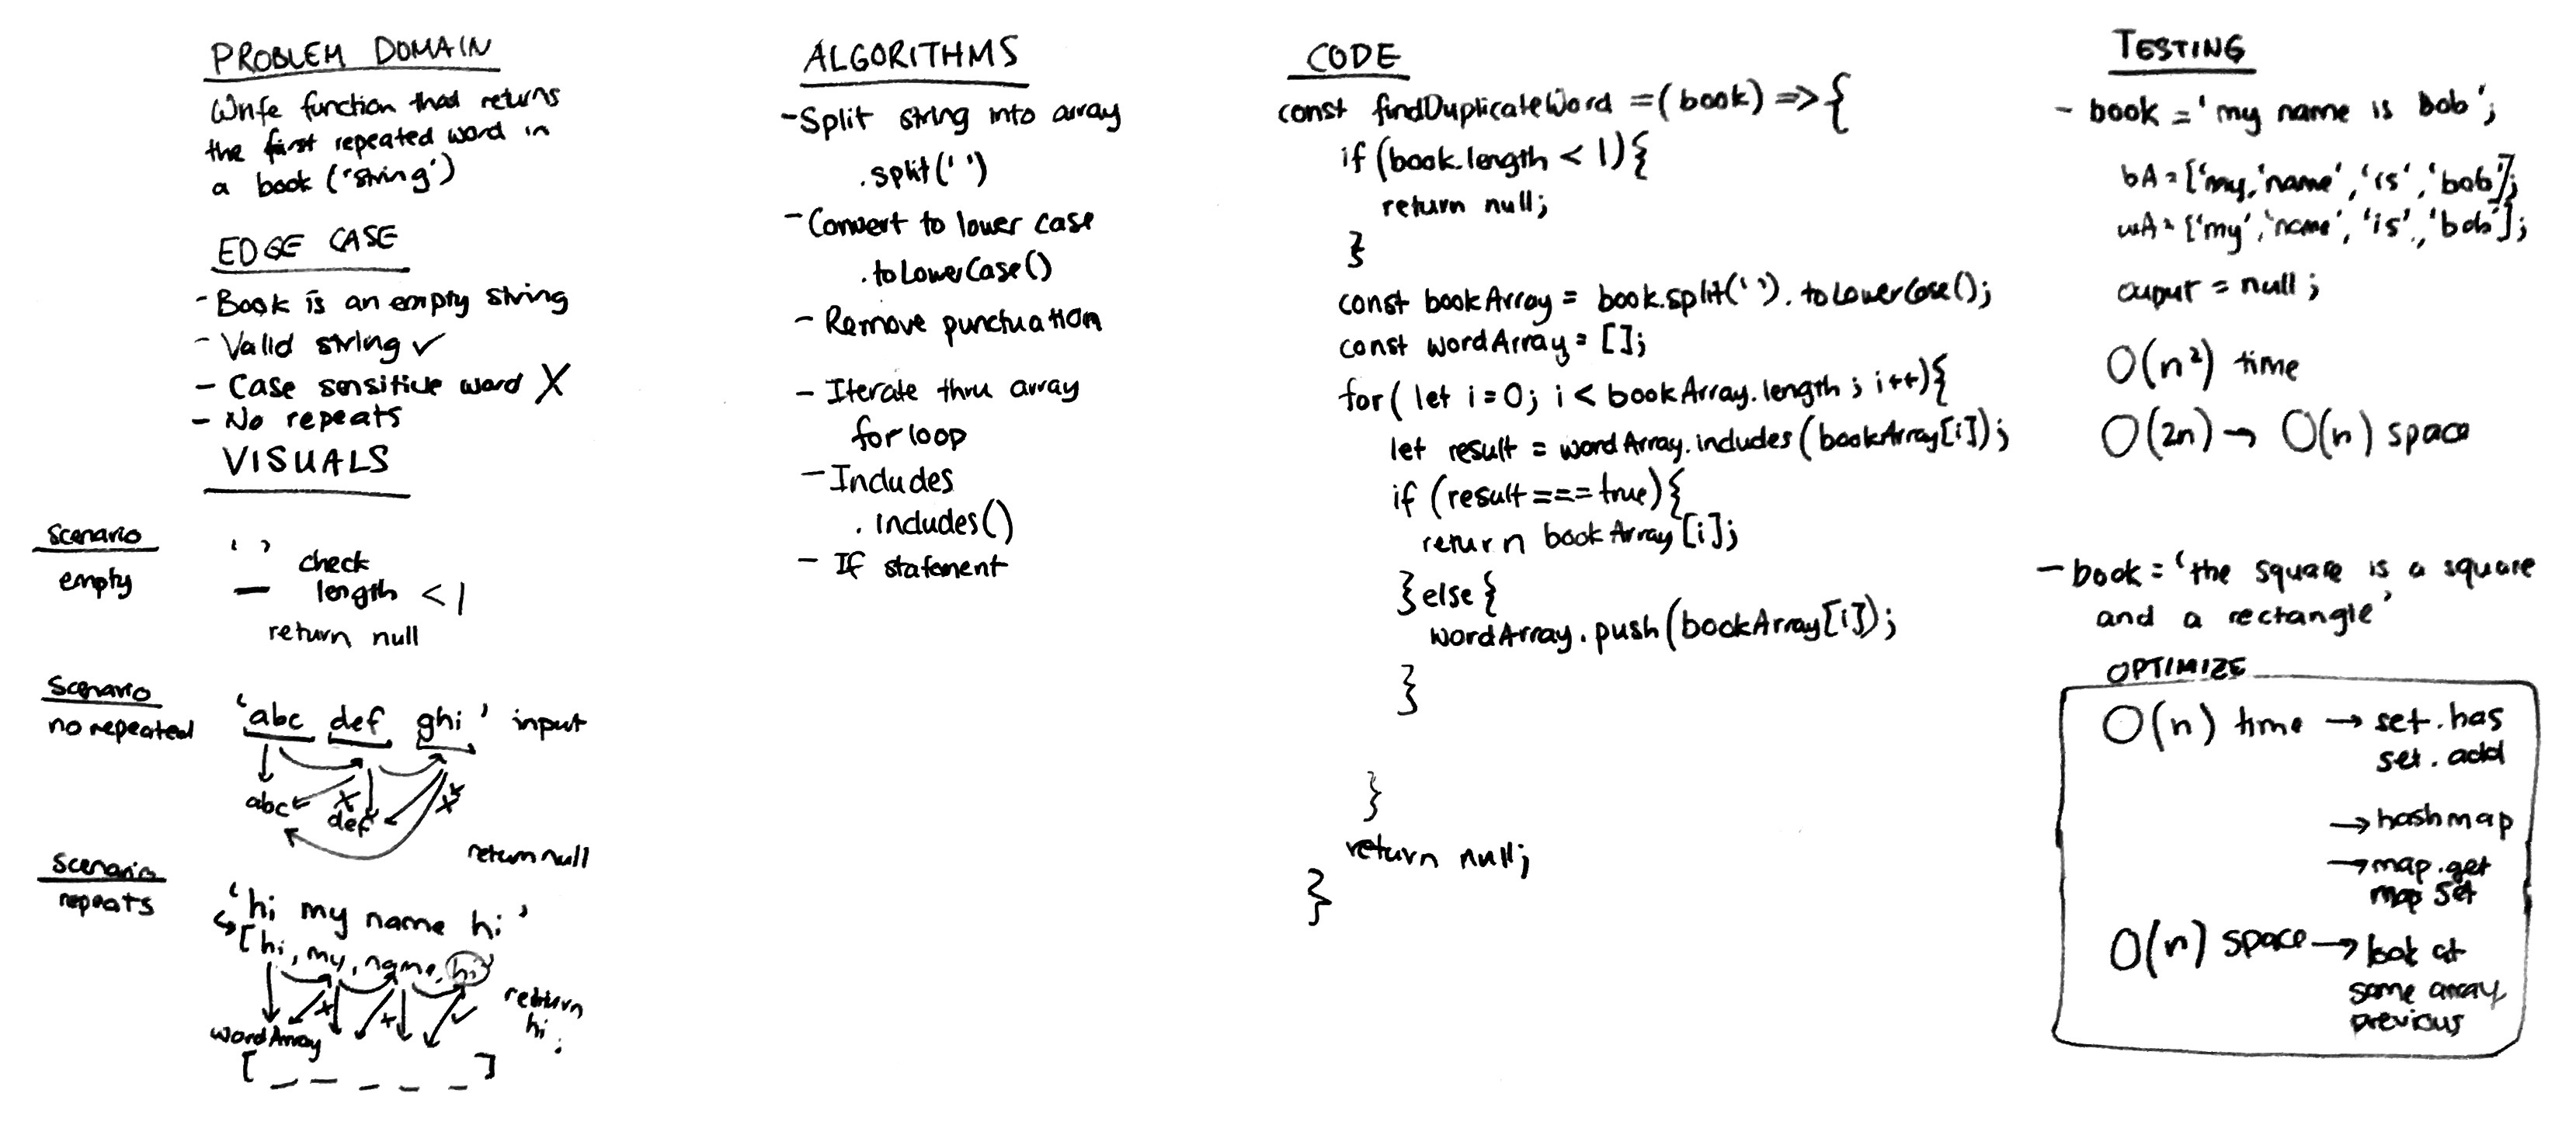 PROBLEM DOMAIN
Write function that returns
the first repeated word in
a book ('string')
EDGE CASE
- Book is an empty string
- Valid string ✓
- Case sensitive word X
- No repeats
VISUALS
scenario
empty
' '
check
— length < 1
return null
Scenario
no repeated
'abc def ghi' input
abc
x
def
x
return null
Scenario
repeats
'hi my name hi'
↳ [hi, my, name, hi]
x x ✓
return
hi;
wordArray
[ _ _ _ _ _ ]
ALGORITHMS
- Split string into array
.split(' ')
- Convert to lower case
.toLowerCase()
- Remove punctuation
- Iterate thru array
for loop
- Includes
.includes()
- If statement
CODE
const findDuplicateWord = (book) => {
if (book.length < 1){
return null;
}
const bookArray = book.split(' ').toLowerCase();
const wordArray = [];
for( let i = 0; i < bookArray.length; i++){
let result = wordArray.includes(bookArray[i]);
if (result === true){
return bookArray[i];
}else{
wordArray.push(bookArray[i]);
}
}
return null;
}
TESTING
- book = 'my name is bob';
bA = ['my,'name','is','bob'];
wA = ['my','name','is','bob'];
ouput = null;
O(n²) time
O(2n) → O(n) space
- book = 'the square is a square
and a rectangle'
OPTIMIZE
O(n) time → set.has
set.add
→ hashmap
→ map.get
map set
O(n) space → look at
same array
previous